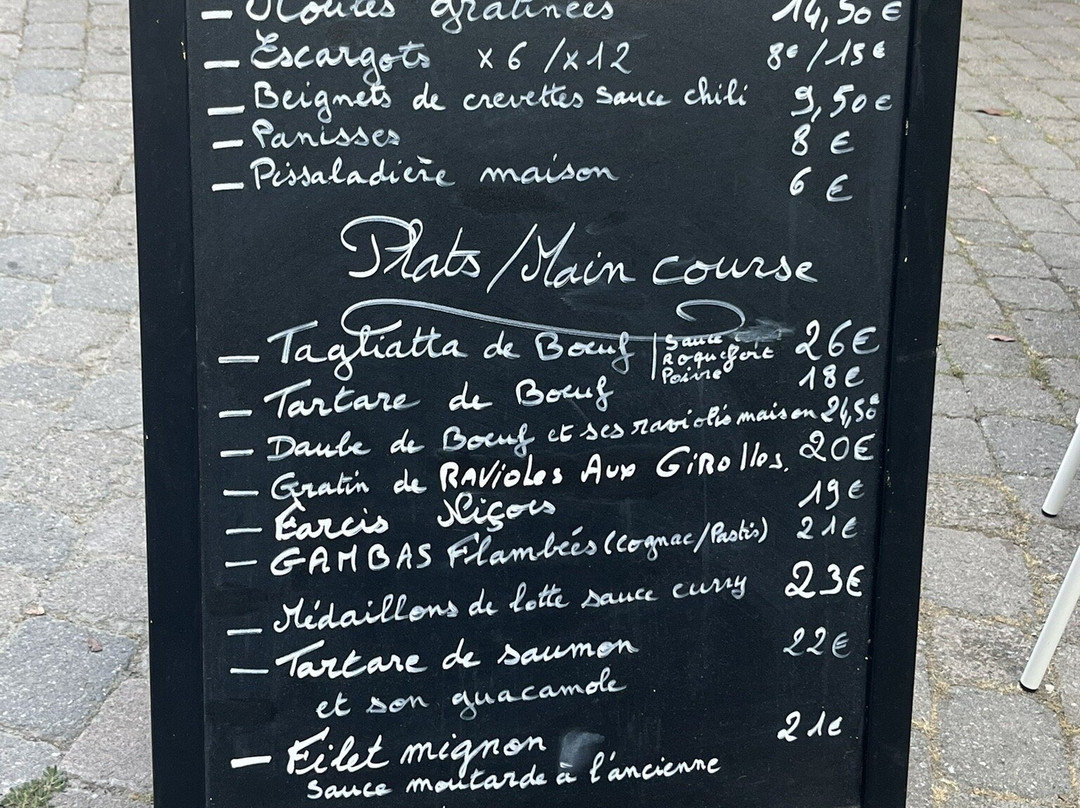 — Moules gratinées 14,50 €
— Escargots x 6 / x 12 8€ / 15€
— Beignets de crevettes sauce chili 9,50 €
— Panisses 8 €
— Pissaladière maison 6 €
Plats / Main course
— Tagliatta de Boeuf | Sauce Roquefort Poivre 26€
— Tartare de Boeuf 18€
— Daube de Boeuf et ses raviolis maison 21,50€
— Gratin de RAVioles Aux GiRolles. 20€
— Farcis Niçois 19€
— GAMBAS Flambées (Cognac/Pastis) 21€
— Médaillons de lotte sauce curry 23€
— Tartare de saumon 22€
et son guacamole
— Filet mignon 21€
sauce moutarde à l'ancienne